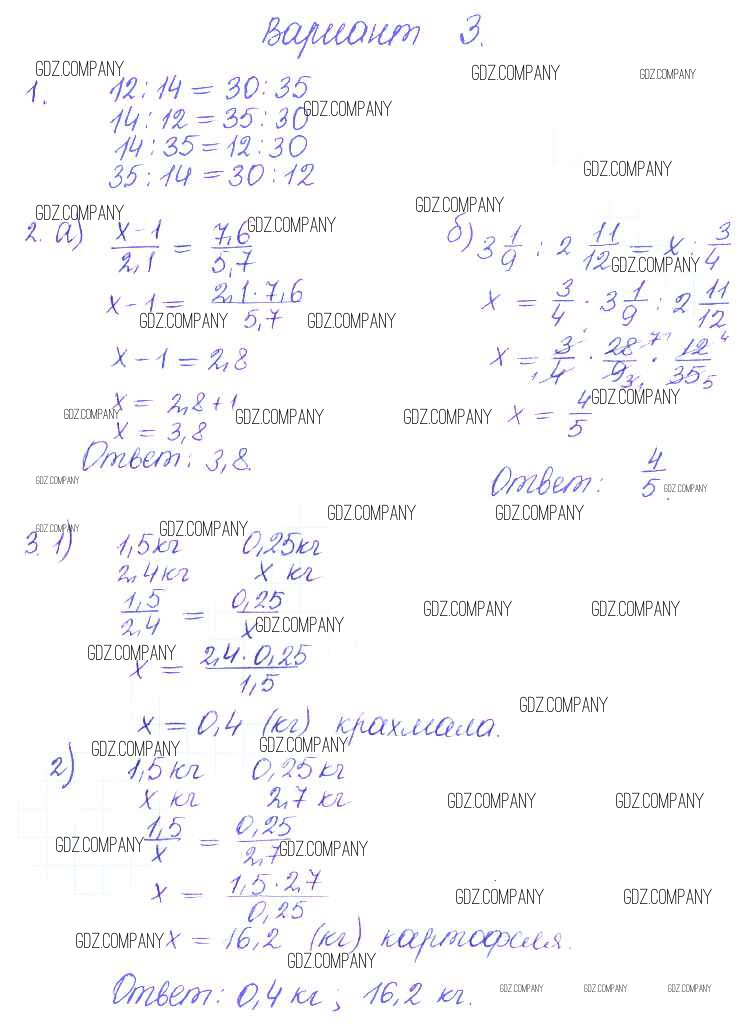 Вариант 3.
GDZ.COMPANY GDZ.COMPANY GDZ.COMPANY
1. 12 : 14 = 30 : 35
14 : 12 = 35 : 30 GDZ.COMPANY
14 : 35 = 12 : 30
35 : 14 = 30 : 12 GDZ.COMPANY
GDZ.COMPANY GDZ.COMPANY GDZ.COMPANY
2. а) x-1/2,1 = 7,6/5,7
x-1 = 2,1·7,6/5,7
GDZ.COMPANY GDZ.COMPANY
x-1 = 2,8
x = 2,8+1
GDZ.COMPANY GDZ.COMPANY
x = 3,8
Ответ: 3,8.
GDZ.COMPANY
б) 3 1/9 : 2 11/12 = x : 3/4
GDZ.COMPANY
x = 3/4 · 3 1/9 : 2 11/12
x = 3/4 · 28/9 · 12/35
1 1 7 3 1 4 5
GDZ.COMPANY
x = 4/5
GDZ.COMPANY
Ответ: 4/5.
GDZ.COMPANY
GDZ.COMPANY GDZ.COMPANY
GDZ.COMPANY GDZ.COMPANY
3. 1) 1,5 кг 0,25 кг
2,4 кг x кг
1,5/2,4 = 0,25/x
GDZ.COMPANY GDZ.COMPANY GDZ.COMPANY
GDZ.COMPANY
x = 2,4·0,25/1,5
GDZ.COMPANY
x = 0,4 (кг) крахмала.
GDZ.COMPANY GDZ.COMPANY
2) 1,5 кг 0,25 кг
x кг 2,7 кг
GDZ.COMPANY GDZ.COMPANY
1,5/x = 0,25/2,7
GDZ.COMPANY GDZ.COMPANY
x = 1,5·2,7/0,25
GDZ.COMPANY GDZ.COMPANY
GDZ.COMPANY x = 16,2 (кг) картофеля.
GDZ.COMPANY
Ответ: 0,4 кг; 16,2 кг.
GDZ.COMPANY GDZ.COMPANY GDZ.COMPANY